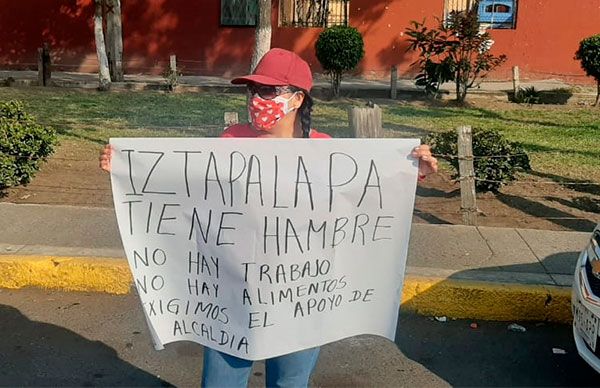 IZTAPALAPA
TIENE HAMBRE
NO HAY TRABAJO
NO HAY ALIMENTOS
EXIGIMOS EL APOYO DE
ALCALDIA